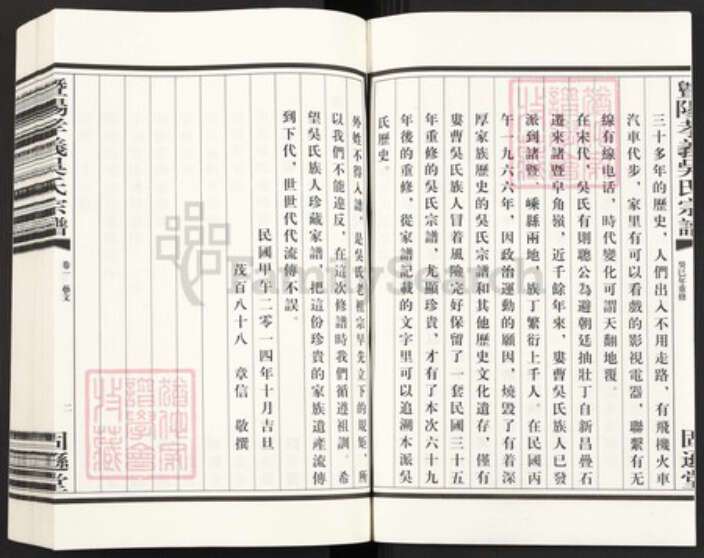 三十多年的歷史，人們出入不用走路，有飛機火車
汽車代步，家里有可以看戲的影視電器，聯繫有无
線有線电话，時代變化可謂天翻地覆。
在宋代，吳氏有則聰公為避朝廷抽壯丁自新昌疊石
遷來諸暨皁角嶺，近千餘年來，婁曹吳氏族人已發
派到諸暨、嵊縣兩地，族丁繁衍上千人。在民國丙
午一九六六年，因政治運動的願因，燒毀了有着深
厚家族歷史的吳氏宗譜和其他歷史文化遺存，僅有
婁曹吳氏族人冒着風險完好保留了一套民國三十五
年重修的吳氏宗譜，尤顯珍貴，才有了本次六十九
年後的重修，從家譜記載的文字里可以追溯本派吳
氏歷史。
外姓不得入譜，是吳氏老祖宗早先立下的規矩，所
以我們不能違反，在這次修譜時我們循遵祖訓。希
望吳氏族人珍藏家譜，把這份珍貴的家族遺産流傳
到下代，世世代代流傳不誤。
民國甲午二零一四年十月吉旦
茂百八十八 章信 敬撰
暨陽孝義吳氏宗譜
癸巳年重修
固遜堂
暨陽孝義吳氏宗譜
卷一 藝文
二
固遜堂
FamilySearch